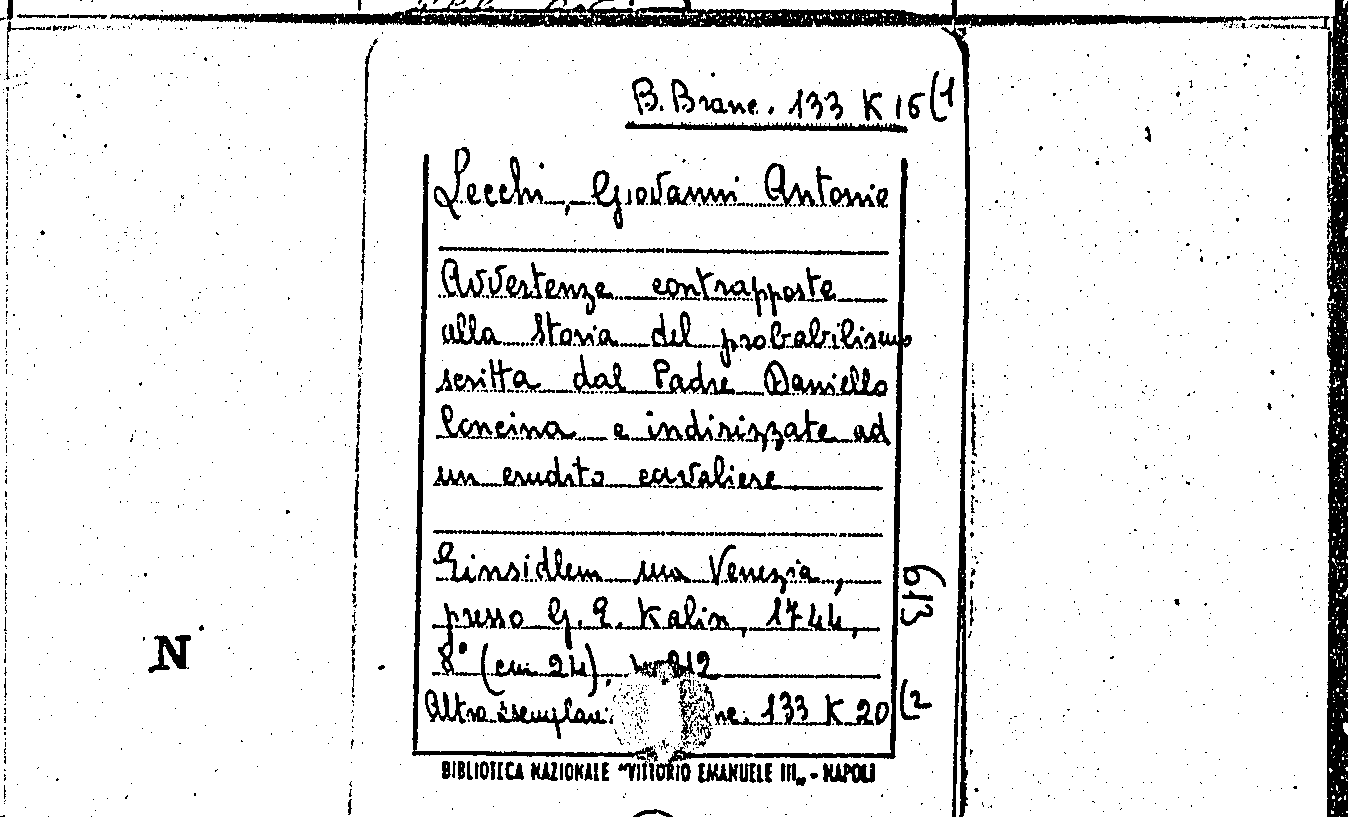 B. Branc. 133 K 16 (1
Lecchi, Giovanni Antonio
Avvertenze contrapposte
alla Storia del probabilismo
scritta dal Padre Daniello
Concina e indirizzate ad
un erudito cavaliere
Einsidlem ma Venezia,
presso G. E. Kalin, 1744,
8° (cm 24), 212
613
Altro esemplare: nc. 133 K 20 (2
N
BIBLIOTECA NAZIONALE "VITTORIO EMANUELE III„ - NAPOLI